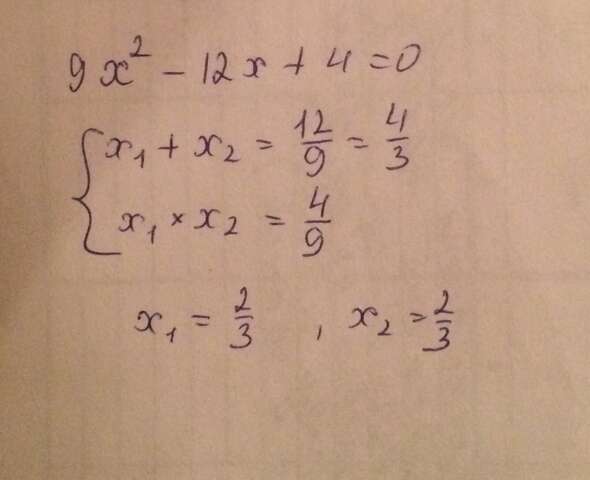 9x² - 12x + 4 = 0
{ x₁ + x₂ = 12/9 = 4/3
x₁ × x₂ = 4/9
x₁ = 2/3 , x₂ = 2/3